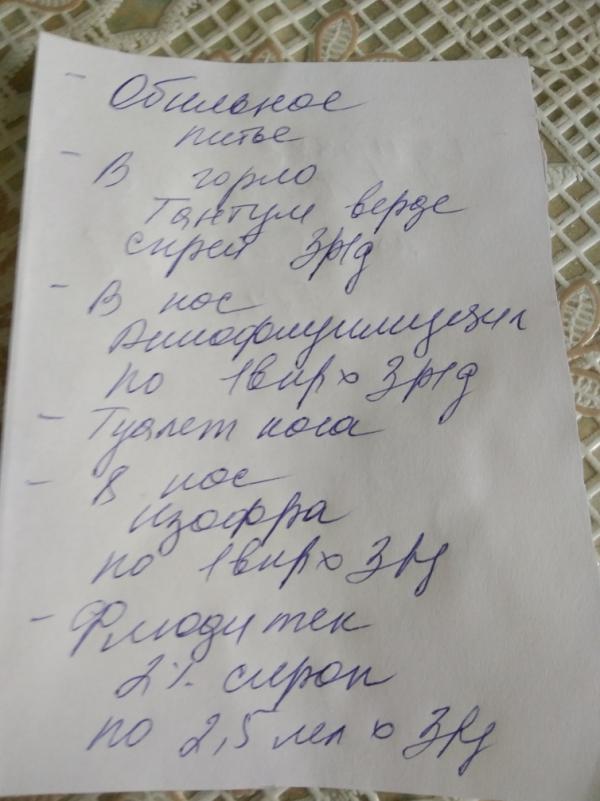 - Обильное
питье
- В горло
Тантум верде
спрей 3р/д
- В нос
по 1впр х 3р/д
- Туалет носа
- В нос
изофра
по 1впр х 3р/д
- Флюдитек
2% сироп
по 2,5 мл х 3р/д